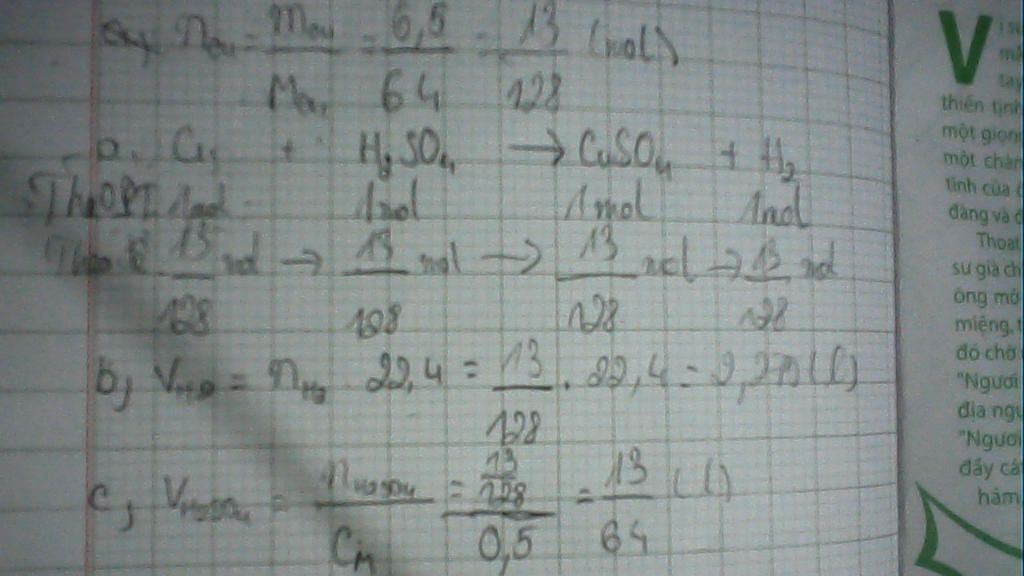 n = m / M = 6,5 / 64 = 13 / 128 (mol)
a, Cu + H₂SO₄ → CuSO₄ + H₂
Theo PT 1mol 1mol 1mol 1mol
13/128 mol → 13/128 mol → 13/128 mol → 13/128 mol
b, V = n 22,4 = 13/128 . 22,4 = (l)
c, V H₂SO₄ = n H₂SO₄ / C M = 13/128 / 0,5 = 13/64 (l)
V
tay
thiên tính
một giọng
một
tính của
đàng và
Thoạt
sư già
ông
miệng,
đó
"Người
địa
"Người
đầy
hăm